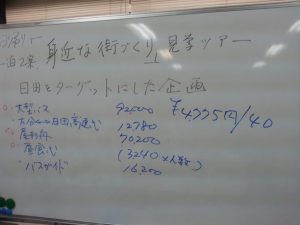 身近な街づくり 見学ツアー
日田をターゲットにした企画
大型バス 92,000 ¥4775円/40
大分⇔日田高速代 12780
屋形船 70,200
昼食代 (3240×人数)
・バスガイド 16,200